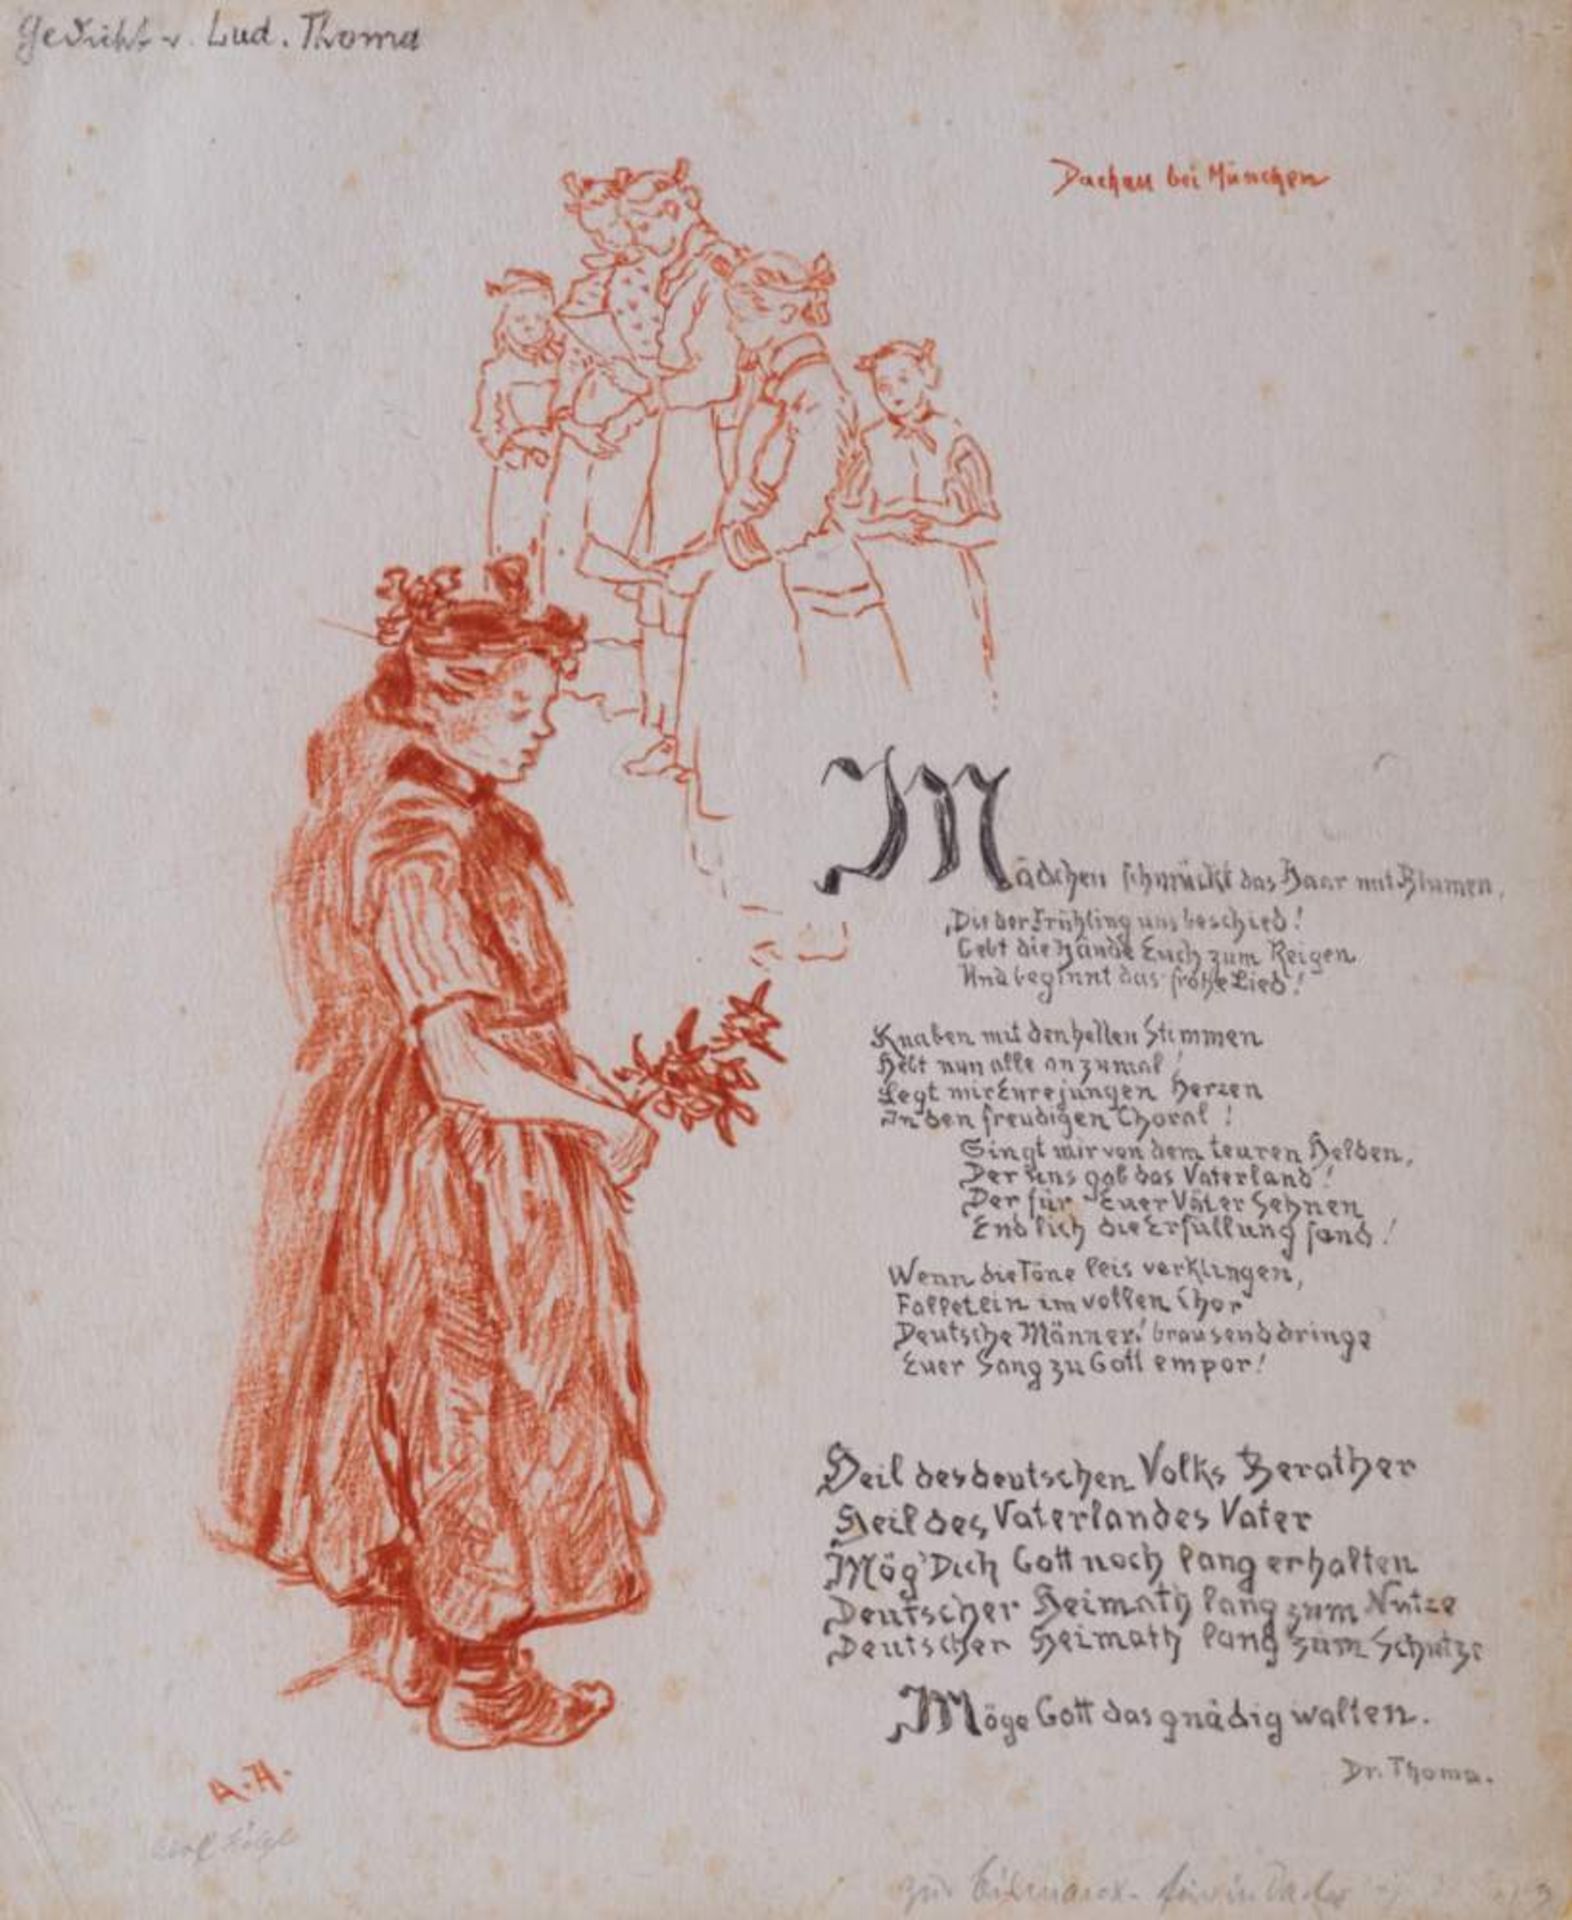 Gedicht v. Lud. Thoma
Dachau bei München
Mädchen schmückt das Haar mit Blumen,
Die der Frühling uns beschied!
Gebt die Hände Euch zum Reigen
Und beginnt das frohe Lied!
Knaben mit den hellen Stimmen
Hebt nun alle an zumal!
Legt mir Eure jungen Herzen
In den freudigen Choral!
Singt mir von dem teuren Helden,
Der uns gab das Vaterland!
Der für Euer Väter Sehnen
Endlich die Erfüllung fand!
Wenn die Töne leis verklingen,
Fallet ein im vollen Chor
Deutsche Männer! brausend dringe
Euer Sang zu Gott empor!
Heil des deutschen Volks Berather
Heil des Vaterlandes Vater
Mög' Dich Gott noch lang erhalten
Deutscher Heimath lang zum Nutze
Deutscher Heimath lang zum Schutze
Möge Gott das gnädig walten.
Dr. Thoma.
A.H.
zur Bismarck-